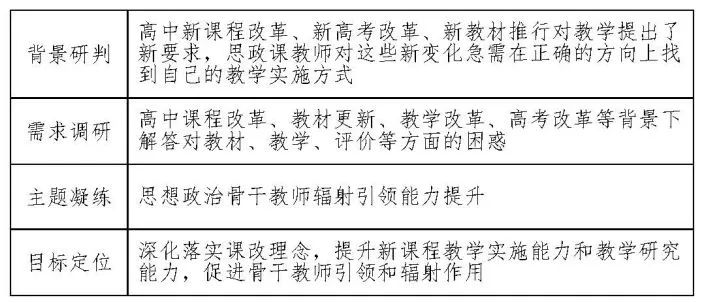 背景研判
高中新课程改革、新高考改革、新教材推行对教学提出了
新要求，思政课教师对这些新变化急需在正确的方向上找
到自己的教学实施方式
需求调研
高中课程改革、教材更新、教学改革、高考改革等背景下
解答对教材、教学、评价等方面的困惑
主题凝练
思想政治骨干教师辐射引领能力提升
目标定位
深化落实课改理念，提升新课程教学实施能力和教学研究
能力，促进骨干教师引领和辐射作用